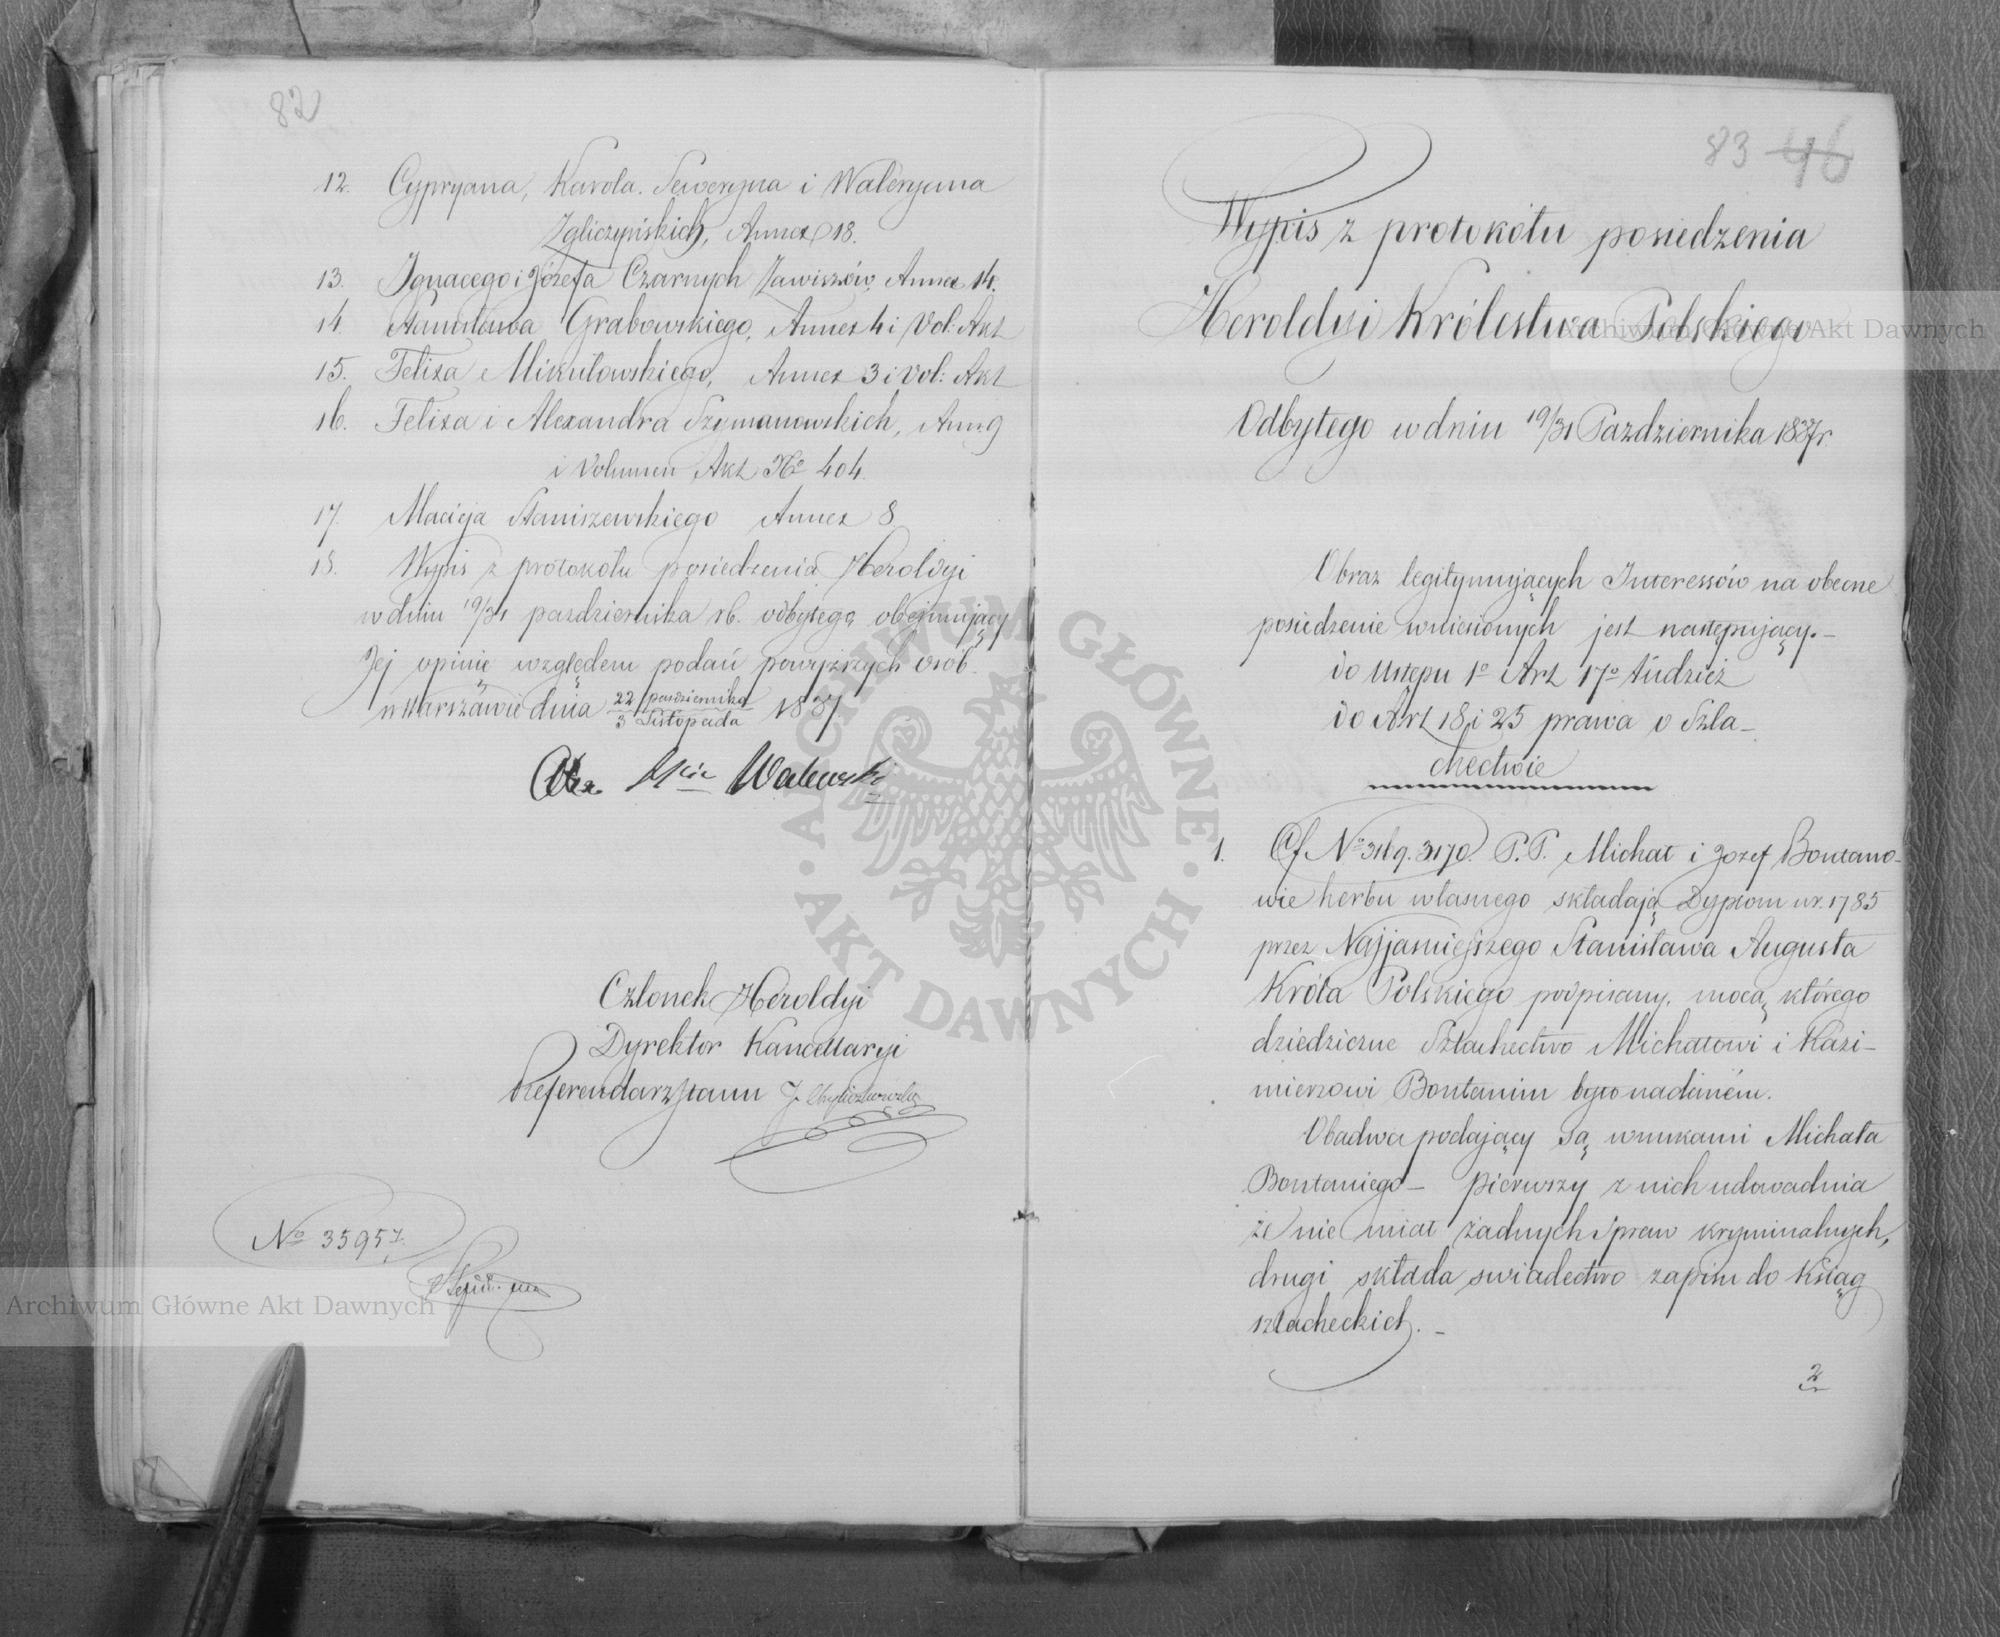 82
12. Cypryana, Karola, Seweryna i Waleryana
Zgliczyńskich, Annex 18.
13. Ignacego i Józefa Czarnych Zawiszów, Annex 14.
14. Stanisława Grabowskiego, Annex 4 i Vol: Akt
15. Felixa Mikułowskiego, Annex 3 i Vol: Akt
16. Felixa i Alexandra Szymanowskich, Ann: 9
i Volumen Akt No 404.
17. Macieja Staniszewskiego Annex 8.
18. Wypis z protokółu posiedzenia Heroldyi
w dniu 19/31 pazdziernika rb. odbytego obejmujący
Jej opinię względem podań powyższych osób.
w Warszawie dnia 22 pazdziernika / 3 Listopada 1837
Walewski
Członek Heroldyi
Dyrektor Kancellaryi
Referendarz Stanu
No 35957.
83 46
Wypis z protokółu posiedzenia
Heroldyi Królestwa Polskiego
Odbytego w dniu 19/31 Pazdziernika 1837 r.
Obraz legitymujących Interessów na obecne
posiedzenie wniesionych jest następujący.-
do Ustępu 1o Art 17o túdzież
do Art 18 i 25 prawa o Szla-
chectwie
1. Cf No 3169. 3170. P.P. Michał i Józef Bontano-
wie herbu własnego składają Dyplom w r. 1785
przez Najjasniejszego Stanisława Augusta
Króla Polskiego podpisany, mocą którego
dziedziczne Szlachectwo Michałowi i Kazi-
mierzowi Bontanim było nadaném.
Obadwa podający są wnukami Michała
Bontaniego- pierwszy z nich udowadnia
że nie miał żadnych spraw kryminalnych,
drugi składa swiadectwo zapisu do Ksiąg
szlacheckich.-
2
Archiwum Główne Akt Dawnych
Archiwum Główne Akt Dawnych
ARCHIWUM GŁÓWNE · AKT DAWNYCH ·